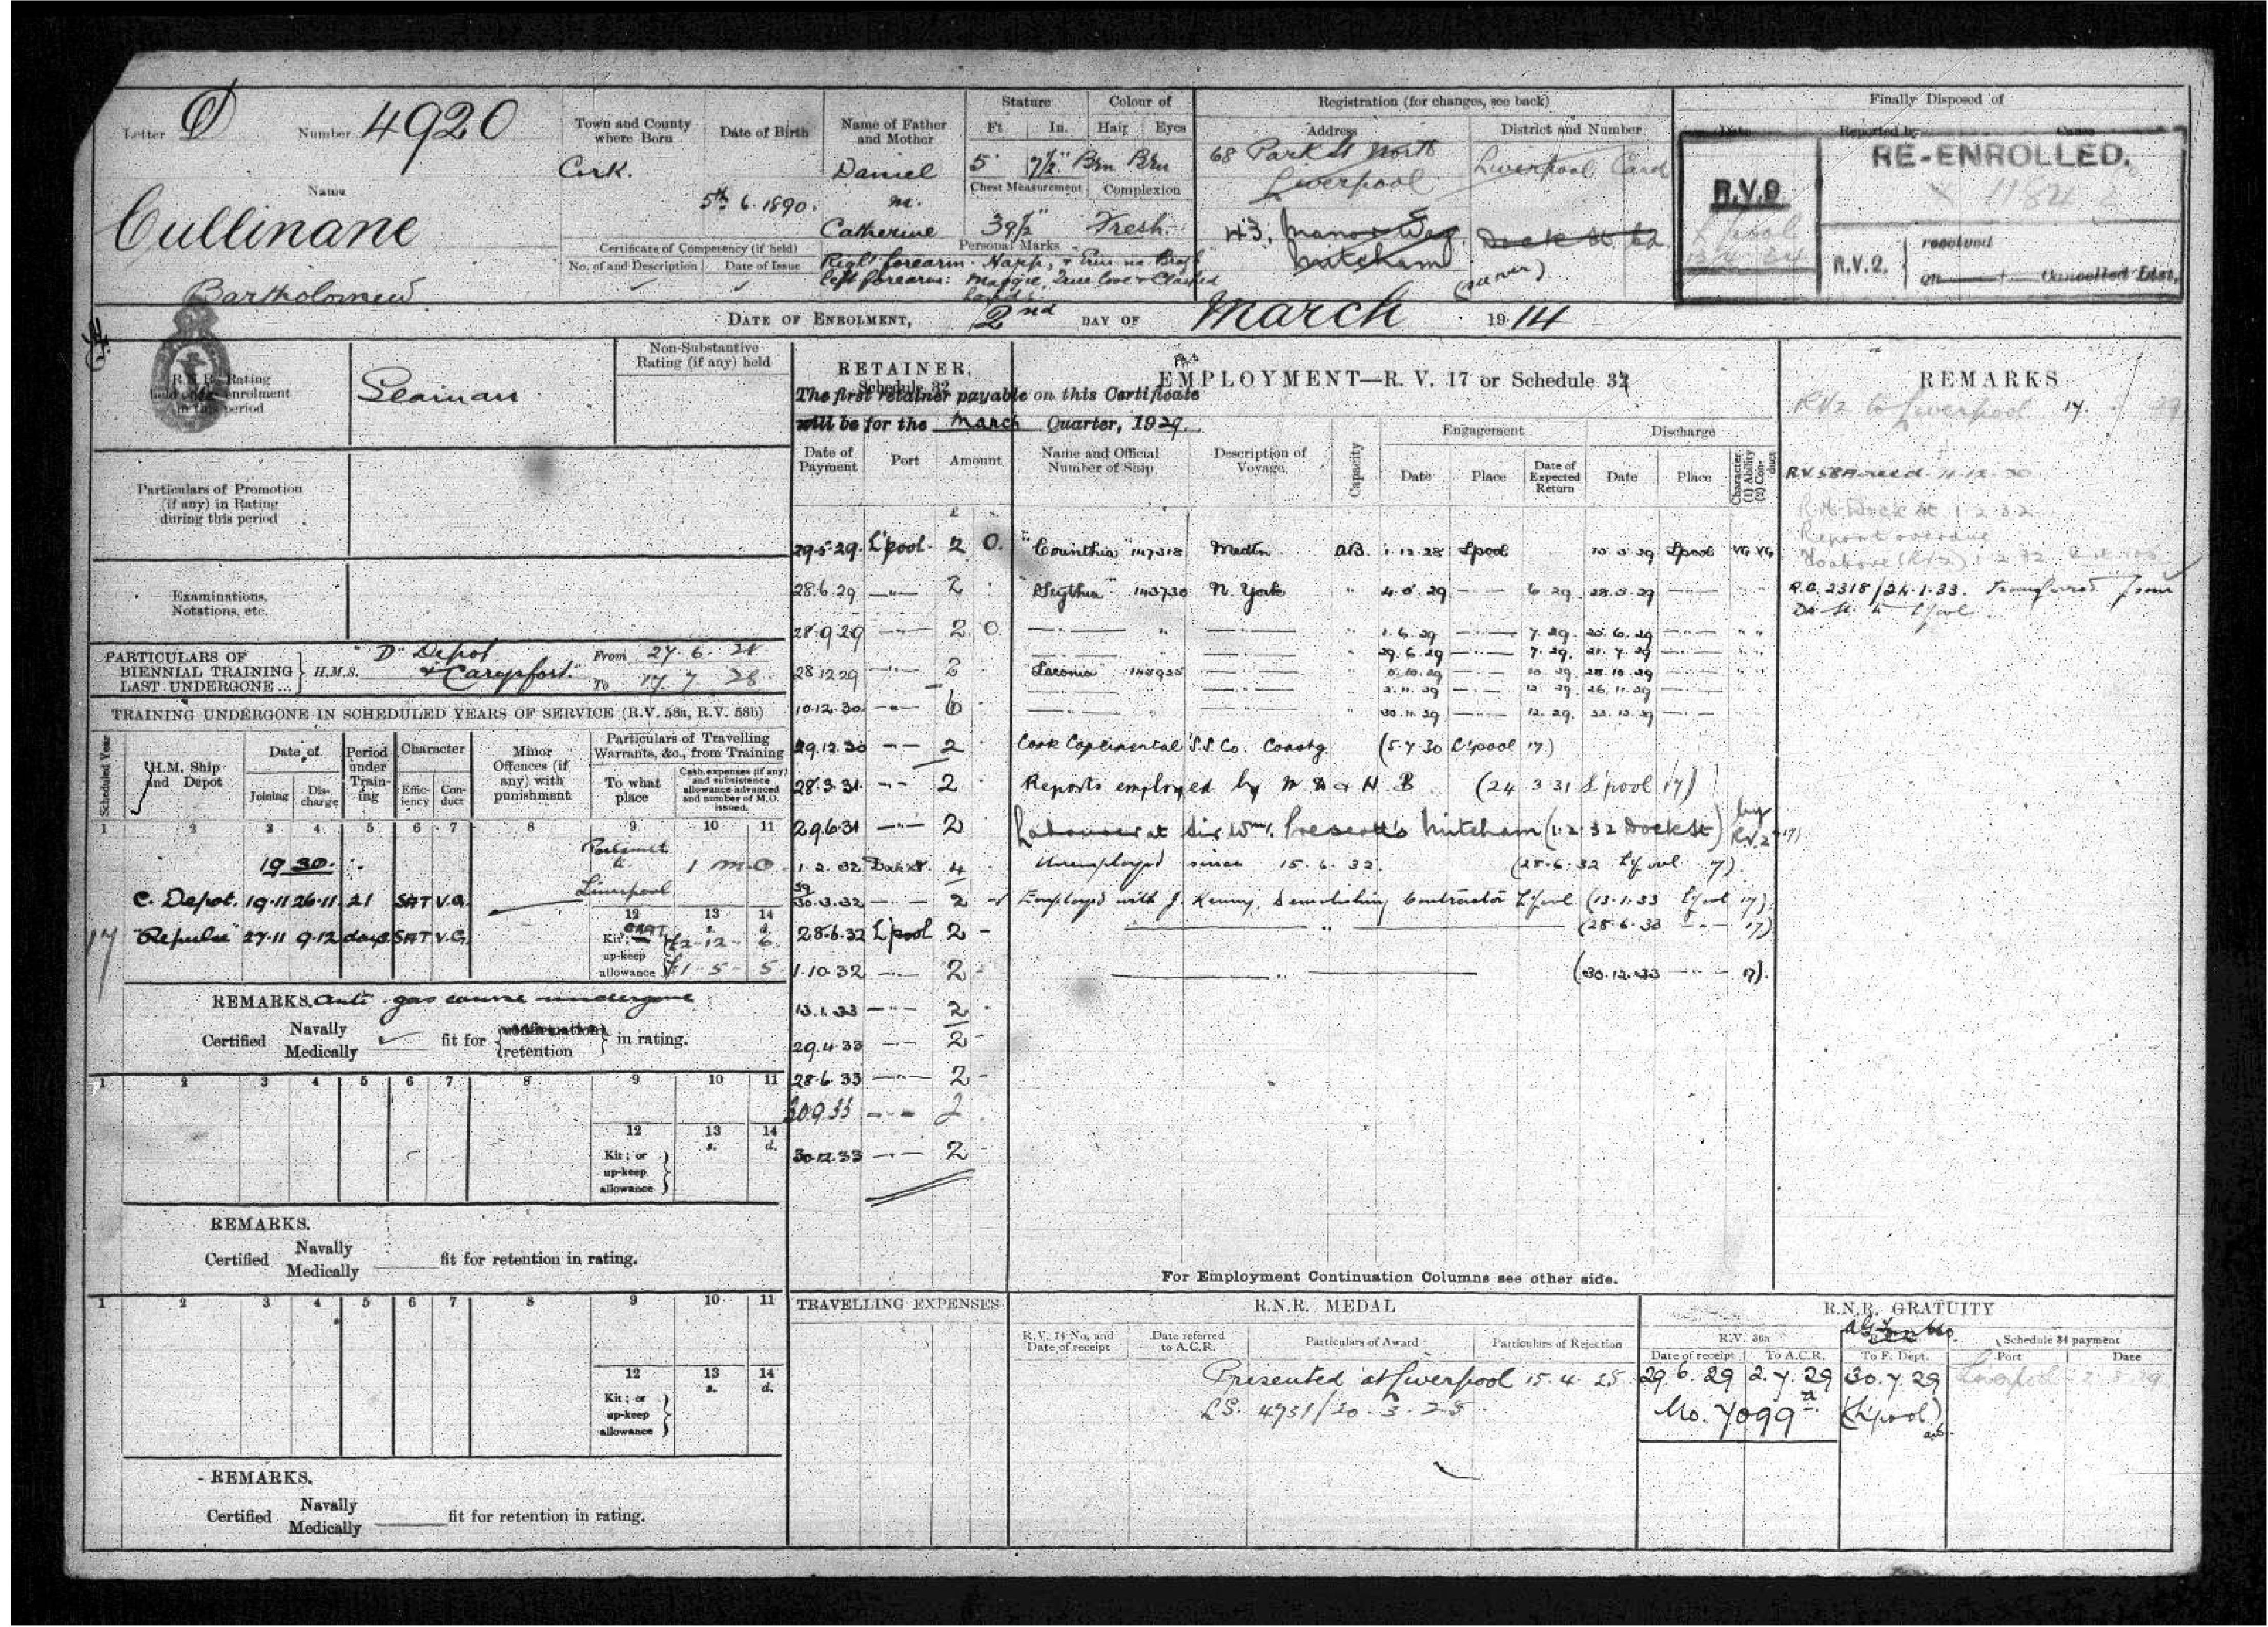 Letter D Number 4920
Name
Cullinane
Bartholomew
Town and County where Born
Cork.
Date of Birth
5th 6. 1890.
Name of Father and Mother
Daniel
m.
Catherine
Stature
Ft. In.
5 7½"
Colour of
Hair Eyes
Brn Brn
Chest Measurement
39½"
Complexion
Fresh
Certificate of Competency (if held)
No. of and Description Date of Issue
Personal Marks
Right forearm. Harp, + Erin na Bragh
left forearm: Maggie, True love + Clasped
hands
Registration (for changes, see back)
Address
68 Park St North
Liverpool
43, Manor Way,
Mitcham
(over)
District and Number
Liverpool Card
Dock St 62
Finally Disposed of
Date Reported by Cause
RE-ENROLLED.
X 1184
R.V.9
L'pool
R.V.2. received
on Cancelled Edst.
DATE OF ENROLMENT, 2nd DAY OF March 1914
R.N.R. Rating held on enrolment in this period
Seaman
Non-Substantive Rating (if any) held
Particulars of Promotion (if any) in Rating during this period
Examinations, Notations, etc.
PARTICULARS OF BIENNIAL TRAINING LAST UNDERGONE ... H.M.S. "D" Depot From 27.6.28
To 17.7.28
TRAINING UNDERGONE IN SCHEDULED YEARS OF SERVICE (R.V. 58a, R.V. 58b)
Scheduled Year
H.M. Ship and Depot
Date of
Joining Discharge
Period under Training
Character
Efficiency Conduct
Minor Offences (if any) with punishment
Particulars of Travelling Warrants, &c., from Training
To what place
Cash expenses (if any) and subsistence allowance advanced and number of M.O. issued.
1 2 3 4 5 6 7 8 9 10 11
1930.
1 M.O
Liverpool
C. Depot. 19.11 26.11 21 SAT V.G.
17 "Repulse" 27.11 9.12 days SAT V.G.
12 13 14
s. d.
Kit; or up-keep allowance £2-12-6
£1-5-5
REMARKS. Anti-gas course undergone
Certified Navally Medically fit for confirmation retention in rating.
1 2 3 4 5 6 7 8 9 10 11
12 13 14
s. d.
Kit; or up-keep allowance
REMARKS.
Certified Navally Medically fit for retention in rating.
1 2 3 4 5 6 7 8 9 10 11
12 13 14
s. d.
Kit; or up-keep allowance
REMARKS.
Certified Navally Medically fit for retention in rating.
RETAINER.
Schedule 32
The first retainer payable on this Certificate
will be for the March Quarter, 1929.
Date of Payment Port Amount
£ s.
29.5.29. L'pool. 2 0.
28.6.29 —"— 2
28.9.29 —"— 2 0
28.12.29 —"— 2
10.12.30 —"— 6
29.12.30 —"— 2
28.3.31 —"— 2
29.6.31 —"— 2
1.2.32 Dock St. 4
30.3.32 —"— 2
28.6.32 L'pool 2 -
1.10.32 —"— 2
13.1.33 —"— 2
29.4.33 —"— 2 -
28.6.33 —"— 2 -
30.9.33 —"— 2
30.12.33 —"— 2
TRAVELLING EXPENSES
EMPLOYMENT—R. V. 17 or Schedule 32
Name and Official Number of Ship
Description of Voyage.
Capacity
Engagement
Date Place Date of Expected Return
Discharge
Date Place
Character. (1) Ability (2) Conduct
"Corinthia" 147318 Medtn AB. 1.12.28 Lpool Lpool VG VG
"Scythia" 143730 N. York " 4.5.29 —"— 6.29 28.5.29 —"—
—"— " —"— " 1.6.29 —"— 7.29. 25.6.29 —"— " "
29.6.29 —"— 7.29. 21.7.29 —"— " "
"Laconia" —"— 5.10.29 —"— 10.29 28.10.29 —"—
2.11.29 —"— 12.29. 26.11.29 —"—
—"— " —"— " 30.11.29 —"— 12.29. 23.12.29 —"—
S.S. Co. Coastg. (5.7.30 L'pool 17)
Reports employed by M D & H. B (24.3.31 L'pool 17)
Labourer at Sir Wm. Prescott's Mitcham (1.2.32 Dock St) by R.V.2
Unemployed since 15.6.32. (28.6.32 L'pool 17).
Employed with J. Kenny, Demolishing Contractor L'pool (13.1.33 L'pool 17)
—"— (28.6.33 —"— 17)
—"— (30.12.33 —"— 17).
For Employment Continuation Columns see other side.
REMARKS
RV2 to Liverpool 17.
R.V.58A 11.12.30
Report overdue
R.G. 2318/24.1.33. Transferred from
Do. St. to L'pool
R.N.R. MEDAL
R.V. 14 No. and Date of receipt
Date referred to A.C.R.
Particulars of Award
Particulars of Rejection
Presented at Liverpool 15.4.25
R.N.R. GRATUITY
R.V. 36a
Date of receipt To A.C.R. To F. Dept.
Schedule 34 payment
Port Date
29.6.29 2.7.29 30.7.29 Liverpool
No. 7099a (L'pool)